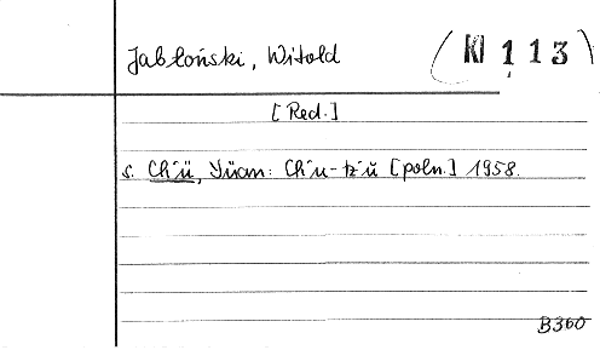 Jabłoński, Witold (KI 113)
[Red.]
s. Ch'ü, Yüan: Ch'u-tz'ŭ [poln.] 1958.
B360